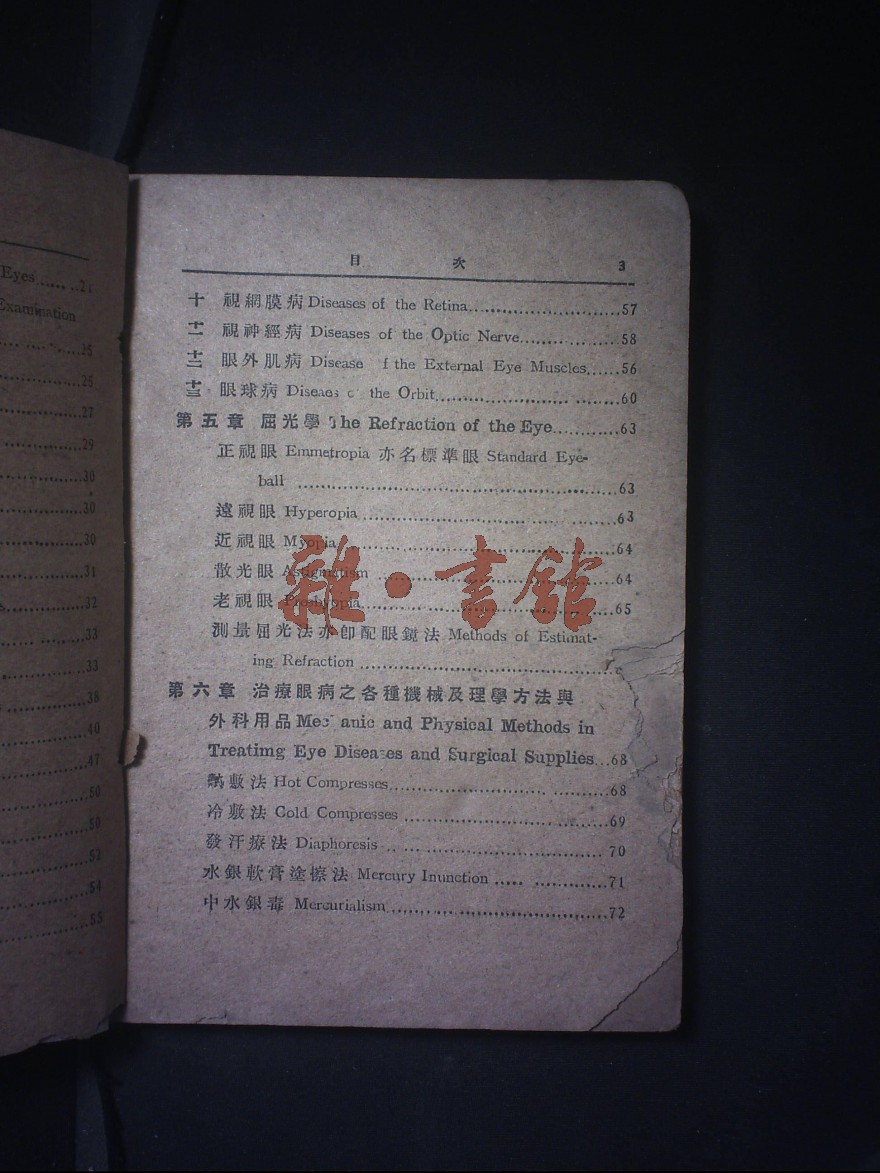 Eyes ..... 21
Examination
25
25
27
29
30
30
30
31
32
33
33
38
40
47
50
50
53
54
55
目 次 3
十 視網膜病 Diseases of the Retina 57
十一 視神經病 Diseases of the Optic Nerve 58
十二 眼外肌病 Disease f the External Eye Muscles 56
十三 眼球病 the Orbit 60
第五章 屈光學 The Refraction of the Eye 63
正視眼 Emmetropia 亦名標準眼 Standard Eye-
ball 63
遠視眼 Hyperopia 63
近視眼 Myopia 64
散光眼 Astigmatism 64
老視眼 Presbyopia 65
測量屈光法亦卽配眼鏡法 Methods of Estimat-
ing Refraction
第六章 治療眼病之各種機械及理學方法與
外科用品 Mec anic and Physical Methods in
Treatimg Eye Diseases and Surgical Supplies 68
熱敷法 Hot Compresses 68
冷敷法 Cold Compresses 69
發汗療法 Diaphoresis 70
水銀軟膏塗擦法 Mercury Inunction 71
中水銀毒 Mercurialism 72
雜·書館